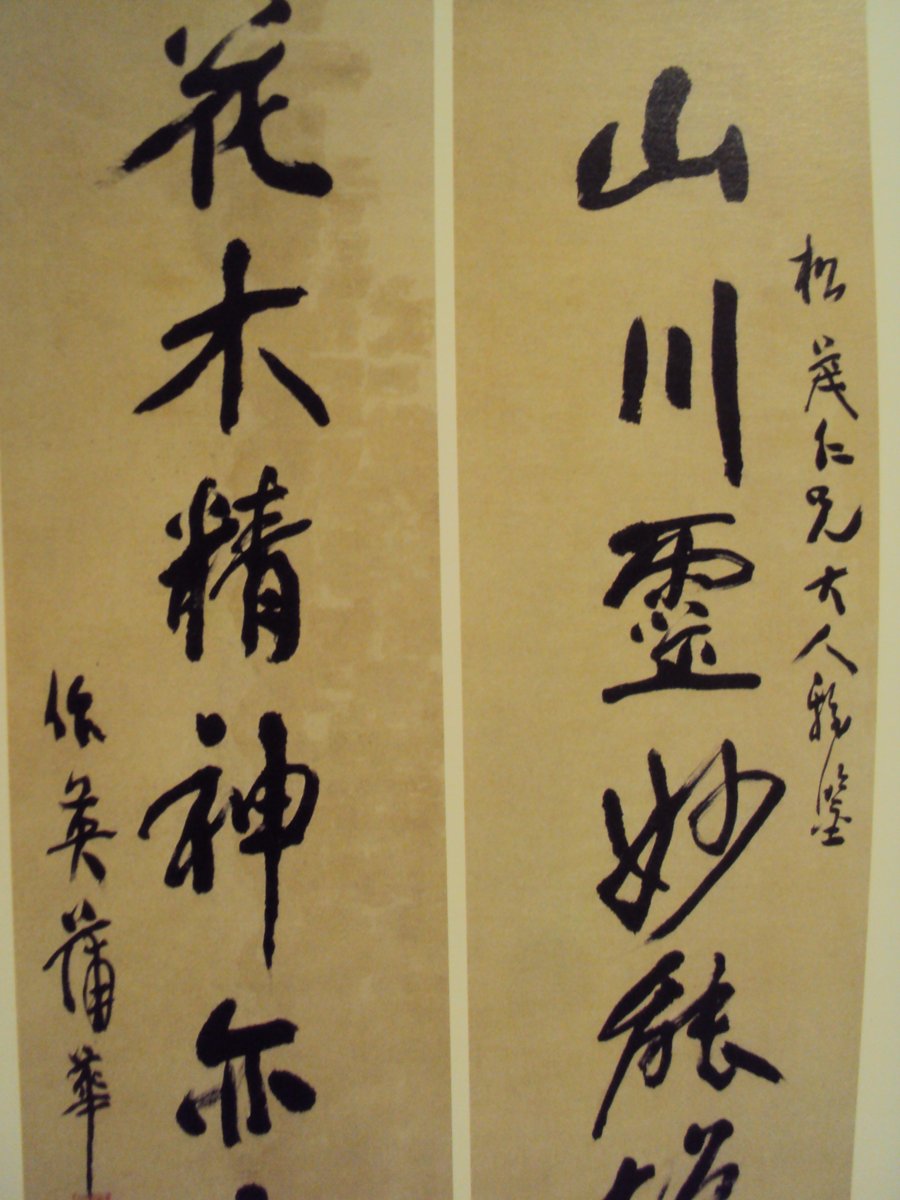 松茂仁兄大人雅鑒
山川靈妙能
花木精神亦
作英蒲華